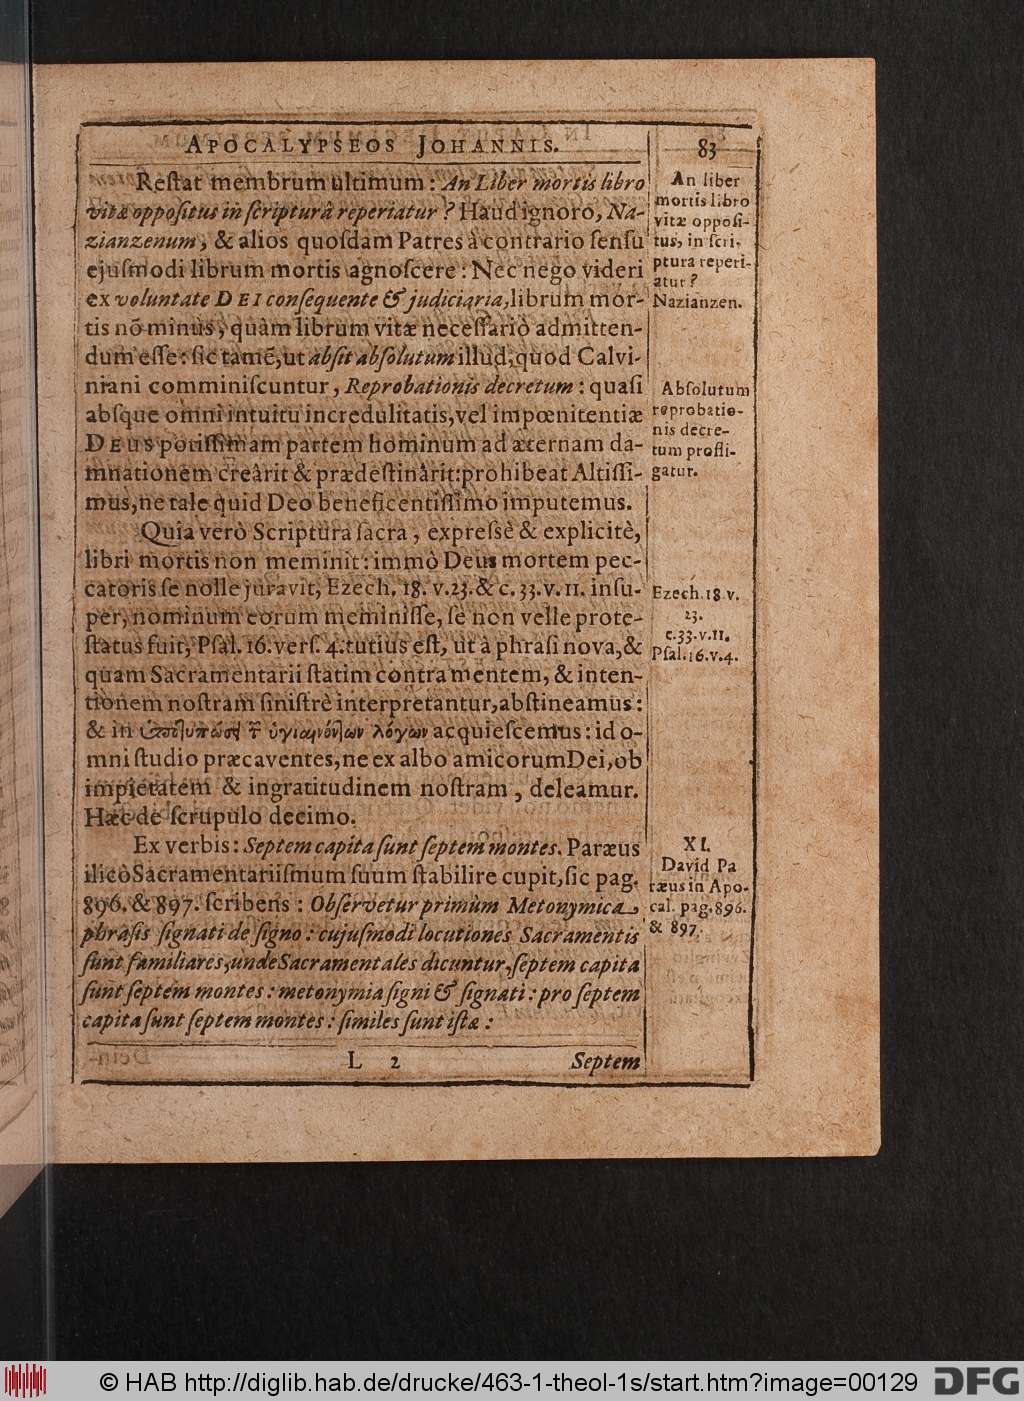 APOCALYPSEOS JOHANNIS. 83
Reſtat membrum ultimum: An Liber mortis libro
vitæ oppoſitus in ſcripturâ reperiatur? Haud ignoro, Na-
zianzenum, & alios quoſdam Patres à contrario ſenſu
ejuſmodi librum mortis agnoſcere: Nec nego videri
ex voluntate DEI conſequente & judiciaria, librum mor-
tis nõ minùs, quàm librum vitæ neceſſariò admitten-
dum eſſe: ſic tamẽ, ut abſit abſolutum illud, quod Calvi-
niani comminiſcuntur, Reprobationis decretum: quaſi
abſque omni intuitu incredulitatis, vel impœnitentiæ
DEUS potiſſimam partem hominum ad æternam da-
mnationem creârit & prædeſtinârit: prohibeat Altiſſi-
mus, ne tale quid Deo beneficentiſſimo imputemus.
Quia verò Scriptura ſacra, expreſsè & explicitè,
libri mortis non meminit: immò Deus mortem pec-
catoris ſe nolle juravit, Ezech. 18. v. 23. & c. 33. v. 11. inſu-
per, nominum eorum meminiſſe, ſe non velle prote-
ſtatus fuit, Pſal. 16. verſ. 4. tutius eſt, ut à phraſi nova, &
quam Sacramentarii ſtatim contra mentem, & inten-
tionem noſtram ſiniſtrè interpretantur, abſtineamus:
& in ὑποτυπώσει τ ὑγιαινόντων λόγων acquieſcemus: id o-
mni ſtudio præcaventes, ne ex albo amicorum Dei, ob
impietatem & ingratitudinem noſtram, deleamur.
Hæc de ſcrupulo decimo.
Ex verbis: Septem capita ſunt ſeptem montes. Paræus
ilicò Sacramentariiſmum ſuum ſtabilire cupit, ſic pag.
896. & 897. ſcribens: Obſervetur primùm Metonymica
phraſis ſignati de ſigno: cujuſmodi locutiones Sacramentis
ſunt familiares, unde Sacramentales dicuntur, ſeptem capita
ſunt ſeptem montes: metonymia ſigni & ſignati: pro ſeptem
capita ſunt ſeptem montes: ſimiles ſunt iſtæ:
L 2 Septem
An liber
mortis libro
vitæ oppoſi-
tus, in ſcri-
ptura reperi-
atur?
Nazianzen.
Abſolutum
reprobatio-
nis decre-
tum profli-
gatur.
Ezech. 18. v.
23.
c. 33. v. 11.
Pſal. 16. v. 4.
XI.
David Pa
ræus in Apo-
cal. pag. 896.
& 897.
© HAB http://diglib.hab.de/drucke/463-1-theol-1s/start.htm?image=00129
DFG